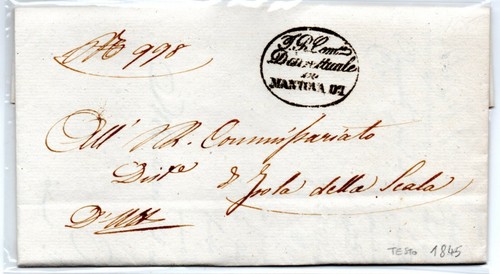 N° 998
I. R. Com.
Distrettuale
in
MANTOVA
All' I.R. Commissariato
Dist.e d' Isola della Scala
D' Uff.
TESTO 1845